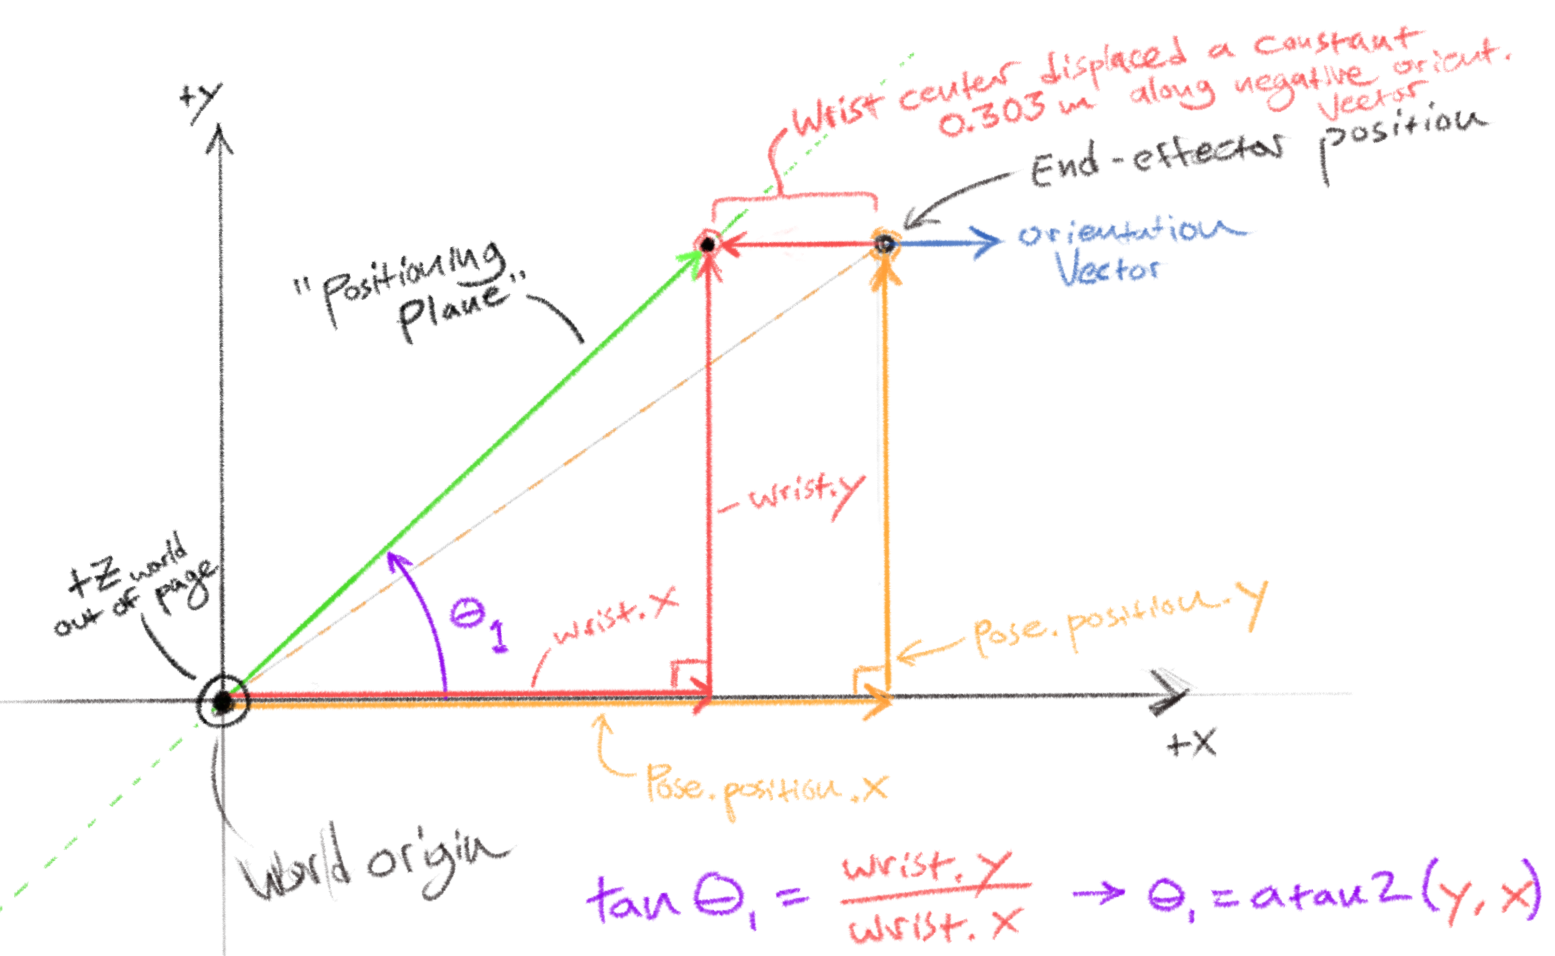 +y
Wrist center displaced a constant
0.303 m along negative orient.
vector
End-effector position
orientation
Vector
"Positioning
Plane"
- wrist.y
+Z world
out of page
θ1
wrist.x
Pose.position.y
+X
Pose.position.x
World origin
tan θ1 = wrist.y / wrist.x → θ1 = atan2(y, x)